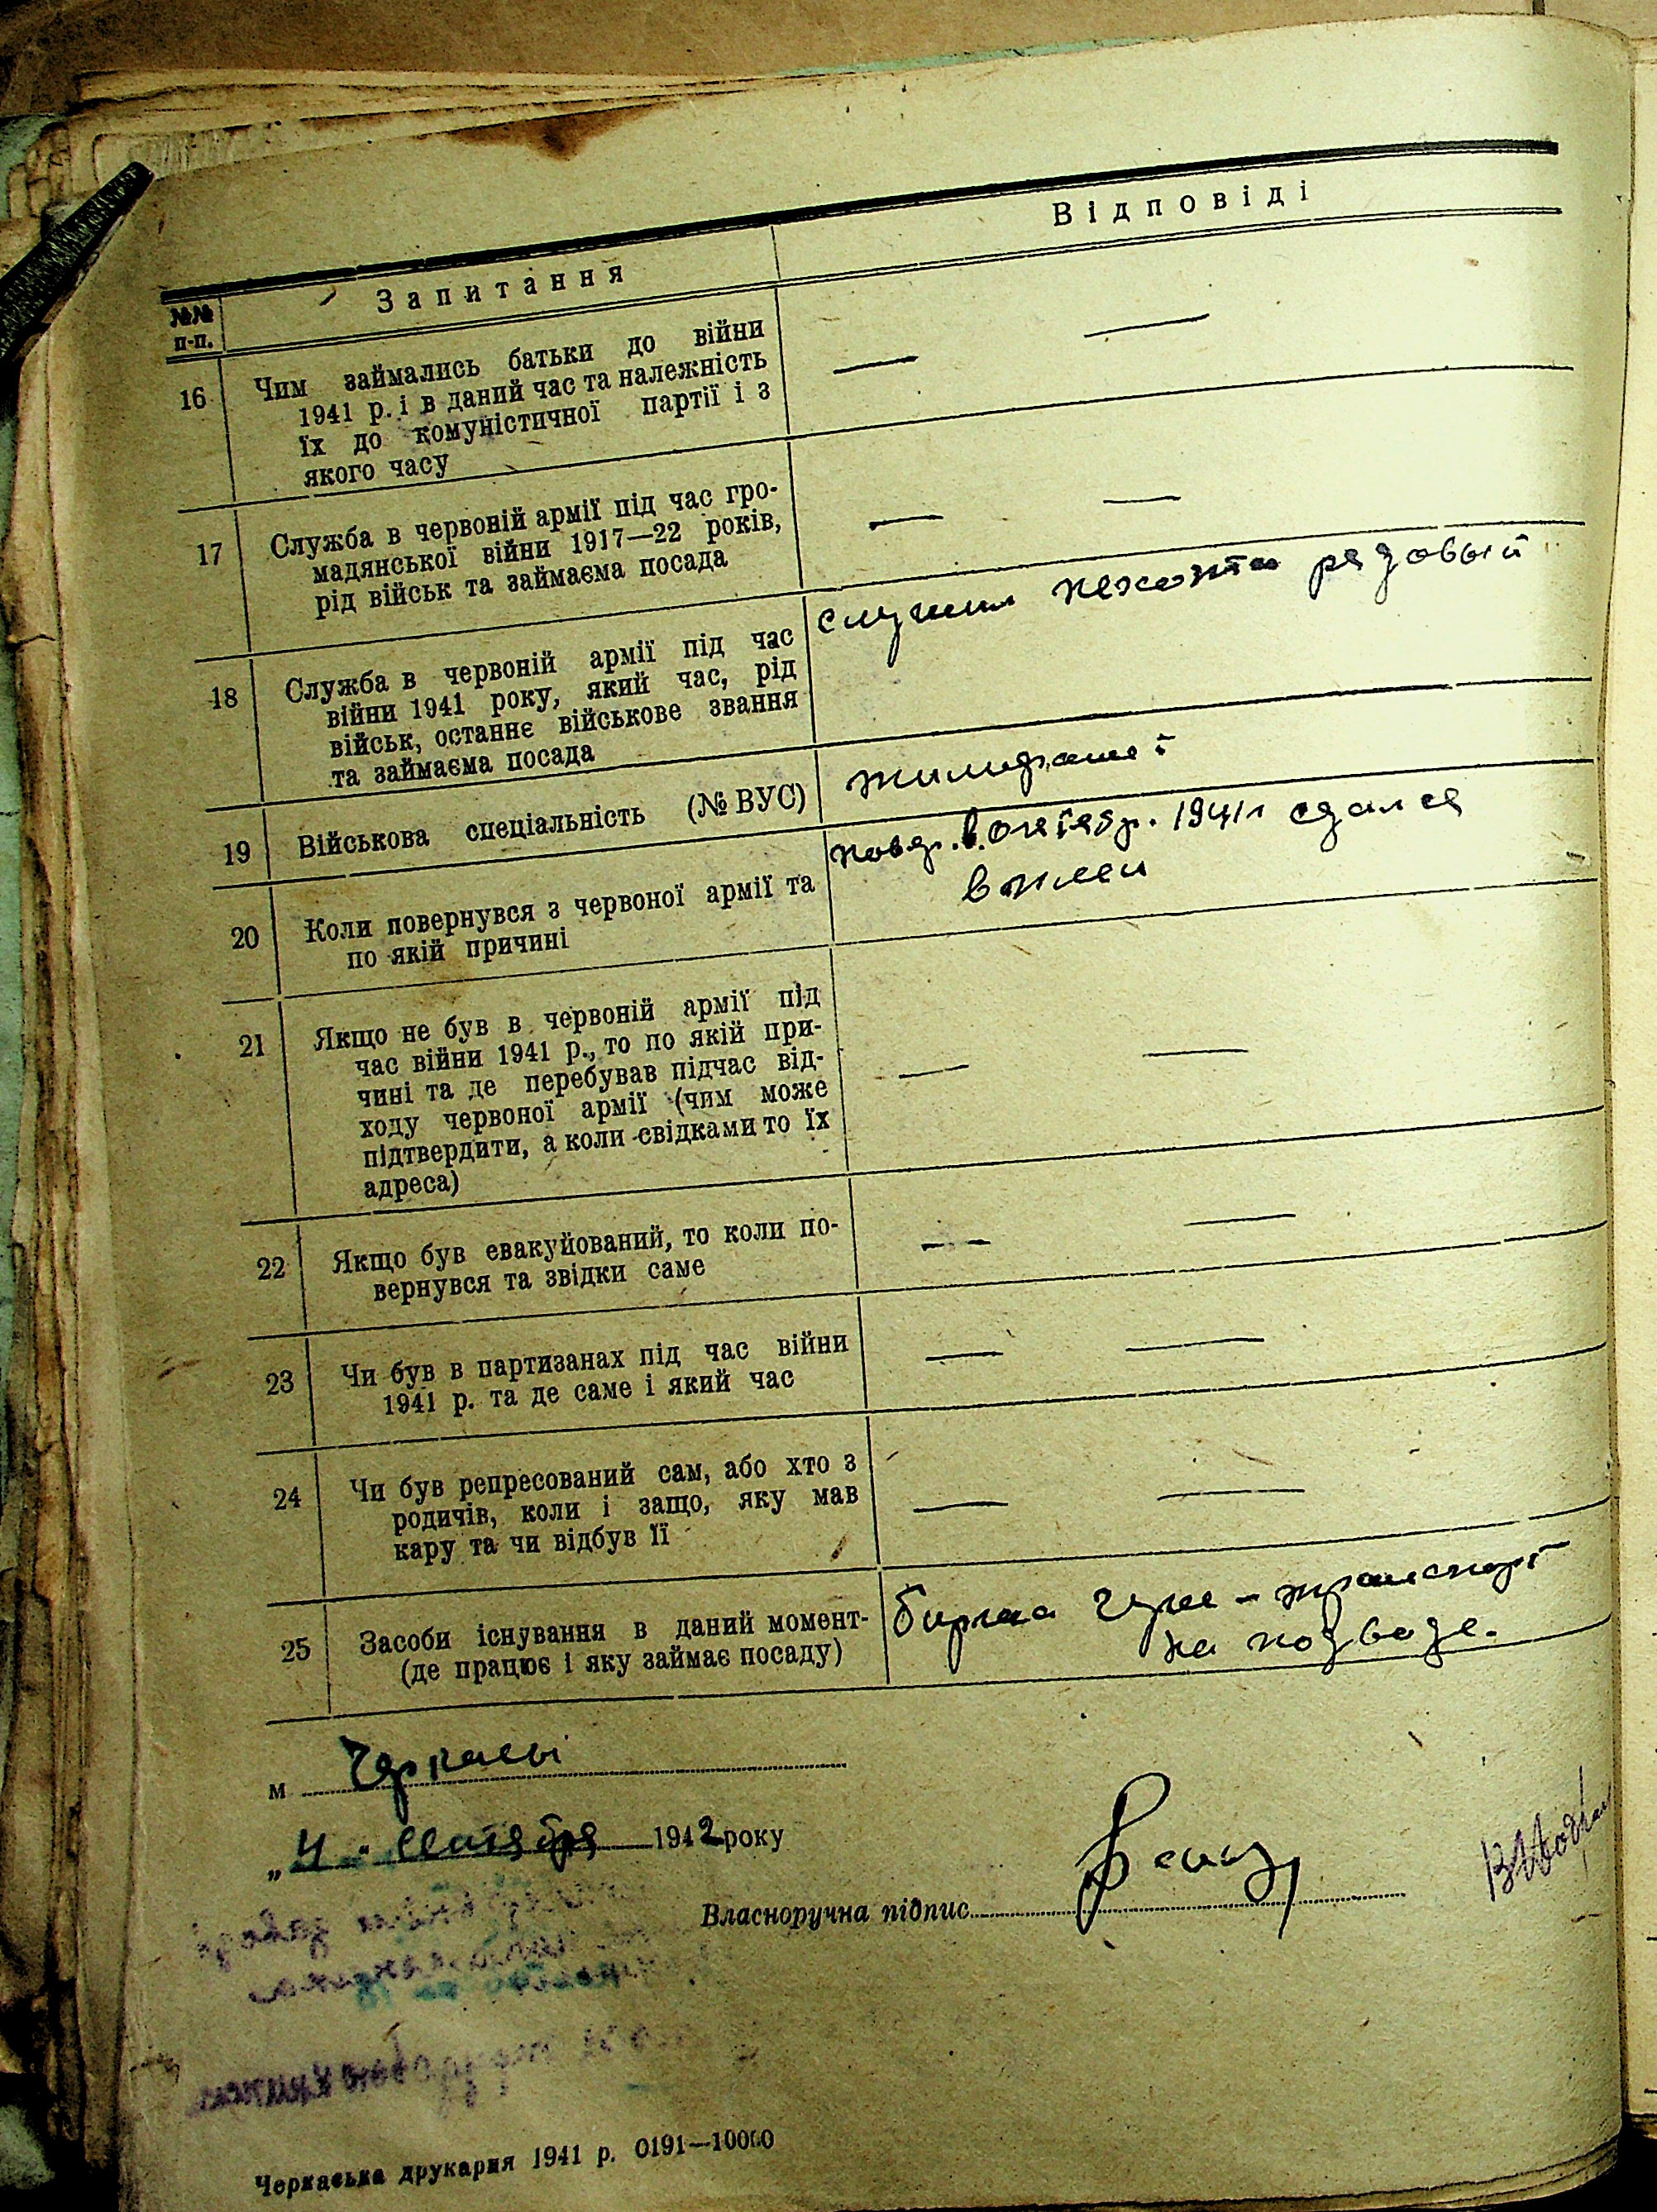 Відповіді
№№ п-п.
Запитання
16 Чим займались батьки до війни
1941 р. і в даний час та належність
їх до комуністичної партії і з
якого часу
— —
17 Служба в червоній армії під час гро-
мадянської війни 1917—22 років,
рід військ та займаєма посада
— —
18 Служба в червоній армії під час
війни 1941 року, який час, рід
військ, останнє військове звання
та займаєма посада
служил пехота рядовый
19 Військова спеціальність (№ ВУС)
20 Коли повернувся з червоної армії та
по якій причині
в октябр. 1941 г сдался
в плен
21 Якщо не був в червоній армії під
час війни 1941 р., то по якій при-
чині та де перебував підчас від-
ходу червоної армії (чим може
підтвердити, а коли свідками то їх
адреса)
— —
22 Якщо був евакуйований, то коли по-
вернувся та звідки саме
— —
23 Чи був в партизанах під час війни
1941 р. та де саме і який час
— —
24 Чи був репресований сам, або хто з
родичів, коли і защо, яку мав
кару та чи відбув її
— —
25 Засоби існування в даний момент-
(де працює і яку займає посаду)
биржа - транспорт
на подводе.
м Черкасы
„4" 1942 року
Власноручна підпис
Черкаська друкарня 1941 р. 0191—10000